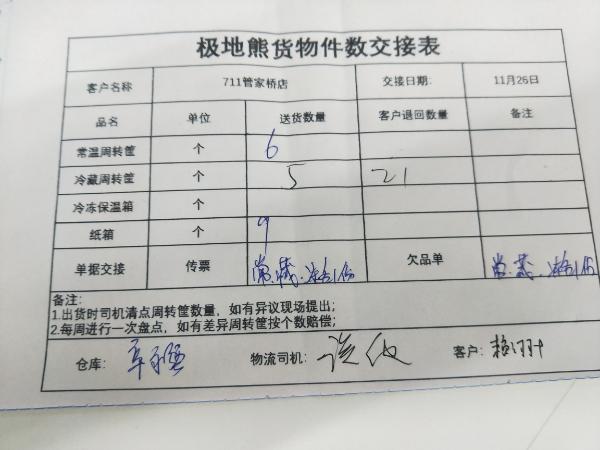 极地熊货物件数交接表
客户名称 711管家桥店 交接日期: 11月26日
品名 单位 送货数量 客户退回数量 备注
常温周转筐 个 6
冷藏周转筐 个 5 21
冷冻保温箱 个
纸箱 个 9
单据交接 传票 常.藏.冻各1份 欠品单 常.藏.冻各1份
备注:
1.出货时司机清点周转筐数量，如有异议现场提出;
2.每周进行一次盘点，如有差异周转筐按个数赔偿;
仓库: 物流司机: 客户: